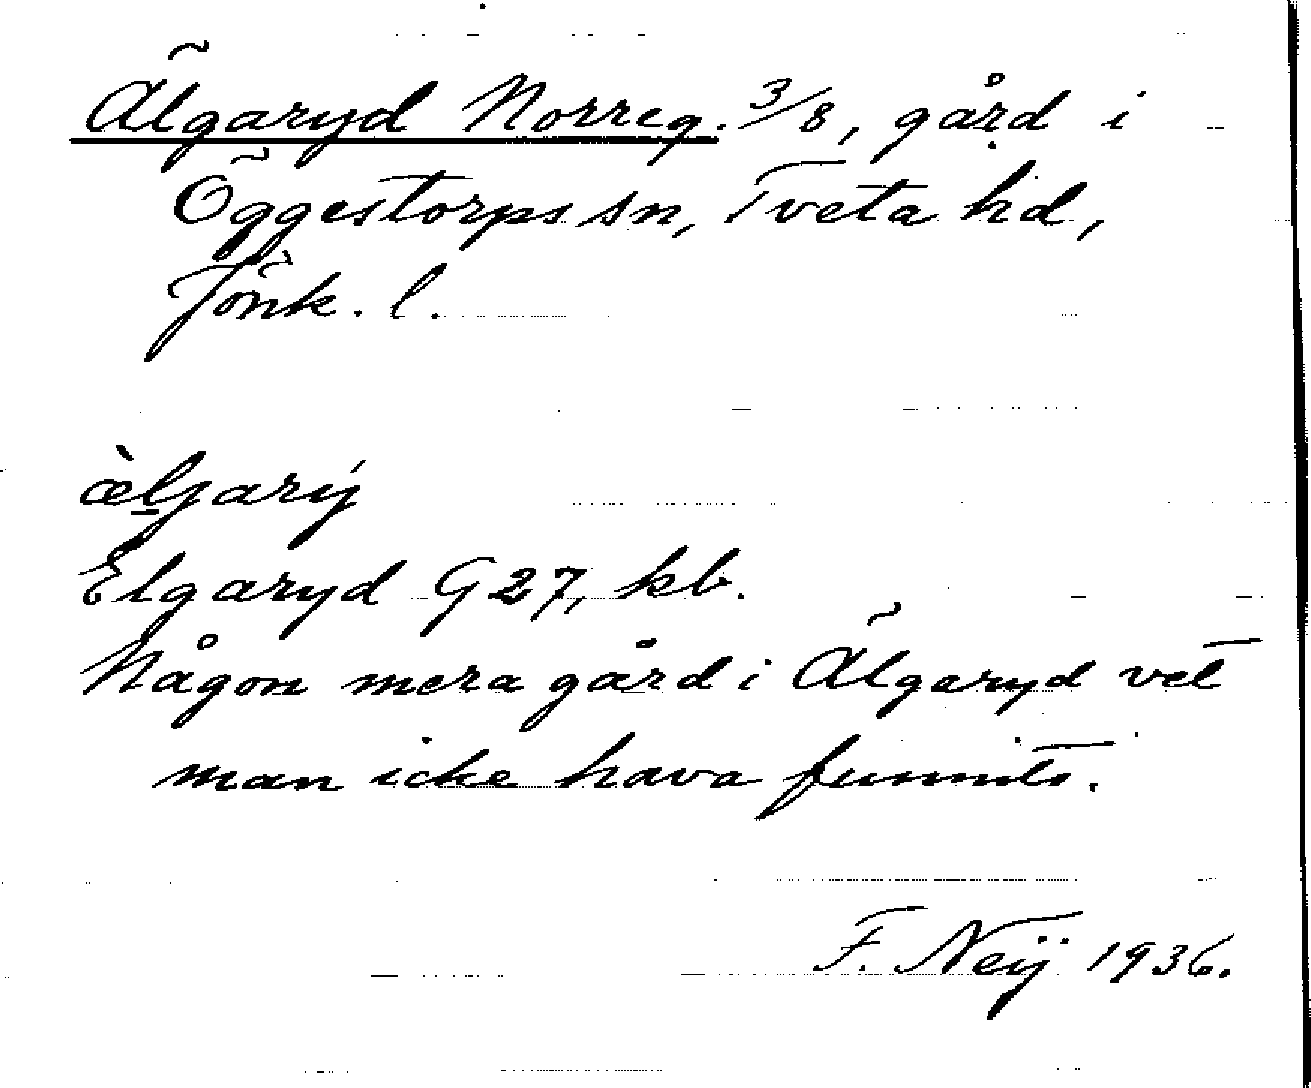 Älgaryd Norreg. 3/8, gård i
Öggestorps sn, Tveta hd,
Jönk. l.
æ̀lgarý
Elgaryd G 27, kb.
Någon mera gård i Älgaryd vet
man icke hava funnits.
F. Neij 1936.